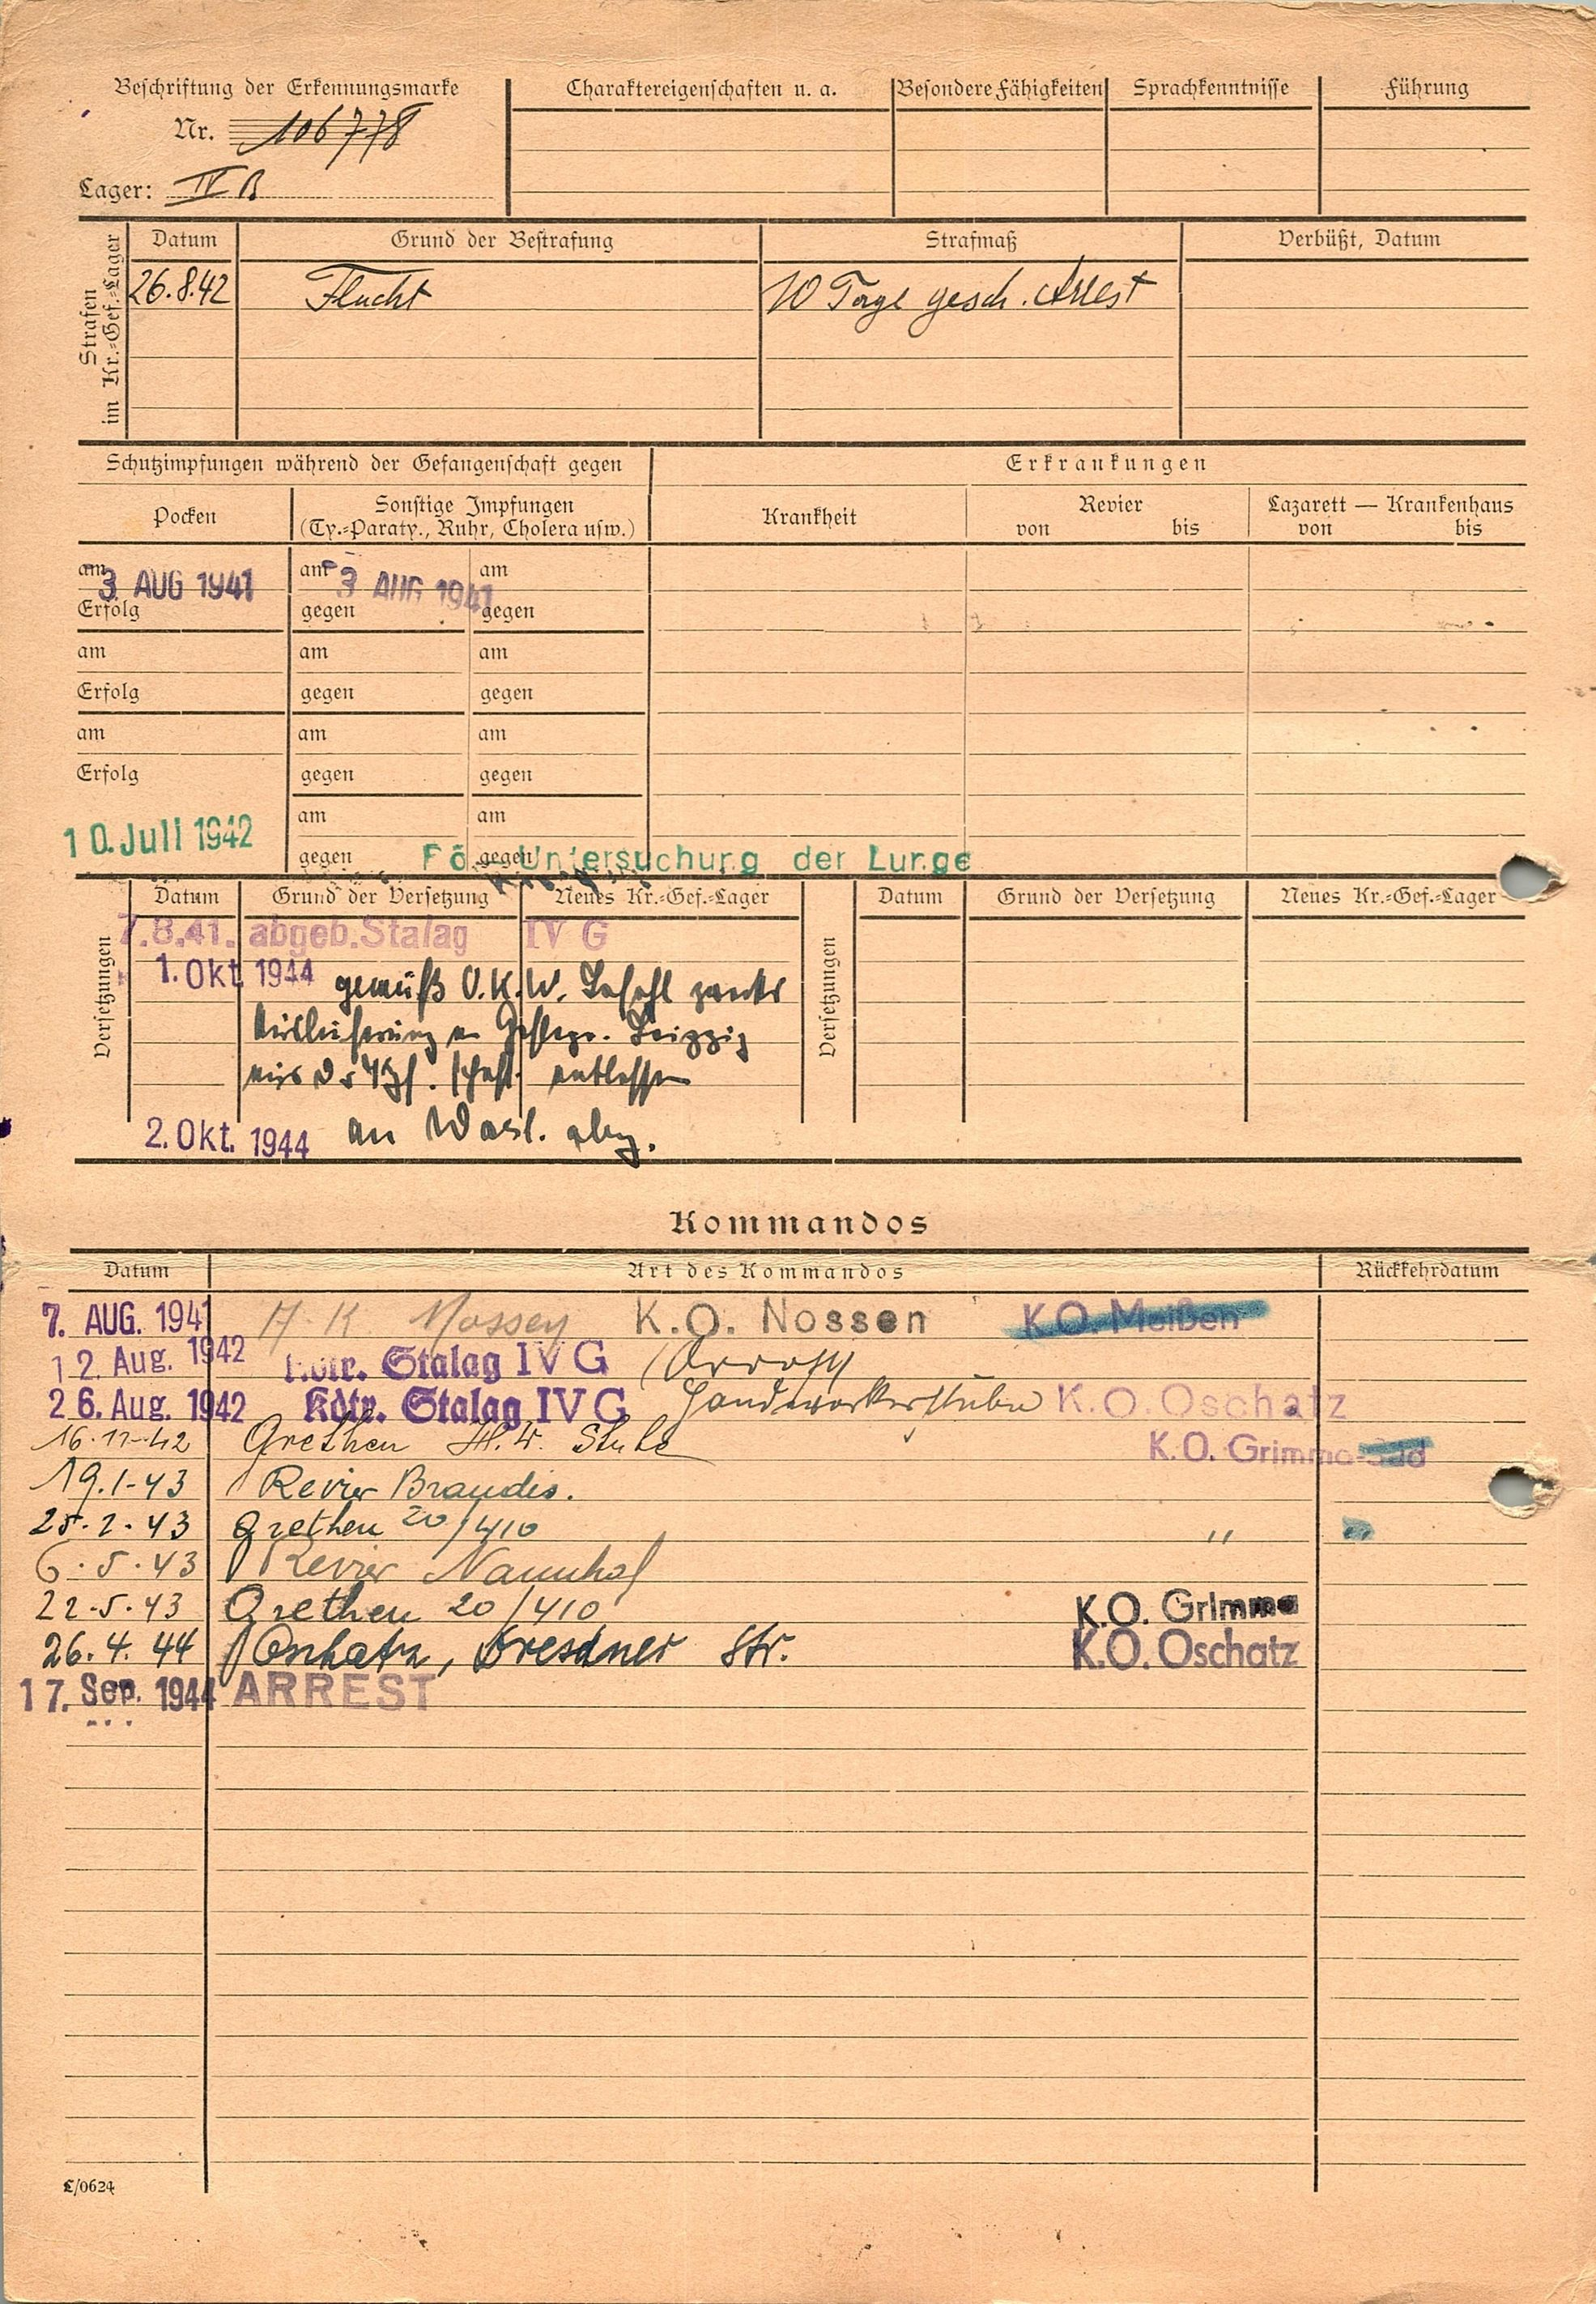 Beschriftung der Erkennungsmarke
Nr. 106778
Lager: IV B
Charaktereigenschaften u. a.
Besondere Fähigkeiten
Sprachkenntnisse
Führung
Strafen im Kr.=Gef.=Lager
Datum
Grund der Bestrafung
Strafmaß
Verbüßt, Datum
26.8.42 Flucht 10 Tage gesch. Arrest
Schutzimpfungen während der Gefangenschaft gegen
Erkrankungen
Pocken
Sonstige Impfungen
(Ty.=Paraty., Ruhr, Cholera usw.)
Krankheit
Revier
von bis
Lazarett — Krankenhaus
von bis
am 3 AUG 1941 am 3 AUG 1941 am
Erfolg gegen gegen
am am am
Erfolg gegen gegen
am am am
Erfolg gegen gegen
am am
10. Juli 1942
gegen gegen
Untersuchung der Lunge
Versetzungen
Datum
Grund der Versetzung
Neues Kr.=Gef.=Lager
Versetzungen
Datum
Grund der Versetzung
Neues Kr.=Gef.=Lager
7.8.41. abgeb. Stalag IV G
1. Okt 1944 gemäß O.K.W. Befehl zwecks
Auslieferung an Gestapo. Leipzig
aus der Kgf.schaft entlassen
2. Okt. 1944 an Wasl. abg.
Kommandos
Datum
Art des Kommandos
Rückkehrdatum
7. AUG. 1941 K.O. Nossen K.O. Meißen
12. Aug. 1942 Kdtr. Stalag IV G
26. Aug. 1942 Kdtr. Stalag IV G Handwerkerstube K.O. Oschatz
16.11.42 Grethen H.W. Stube K.O. Grimma-Süd
19.1.43 Revier Brandis.
25.2.43 Grethen 20/410 "
6.5.43 Revier Naunhof
22.5.43 Grethen 20/410 K.O. Grimma
26.4.44 Oschatz, Dresdner Str. K.O. Oschatz
17. Sep. 1944 ARREST
L/0624